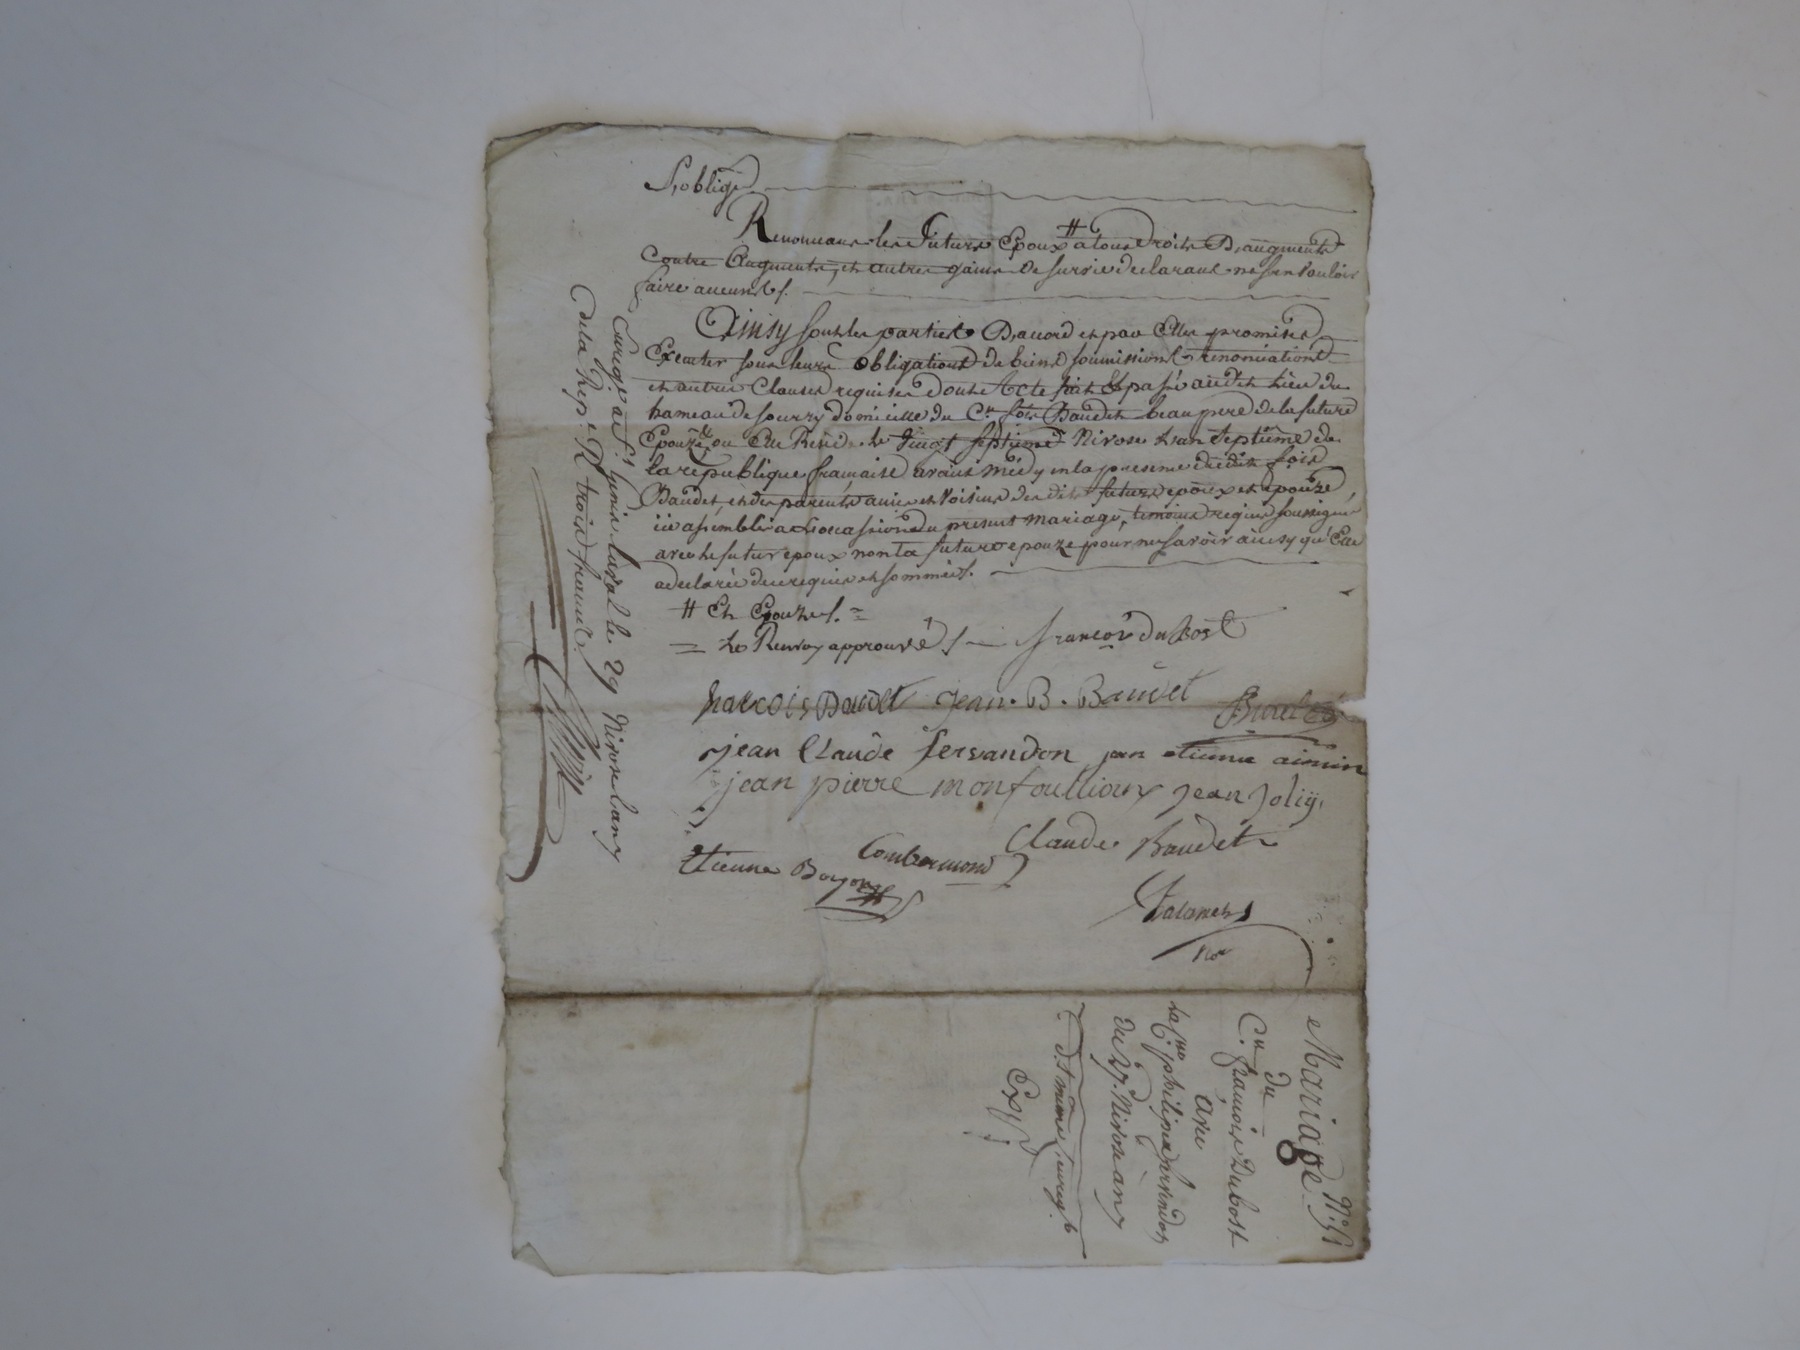 s'oblige
Renonceant les Futurs Epoux # a tous droits D'augments
Contre Augments, et autres gains de survie declarant ne s'en vouloir
faire aucuns /.
Ainsy sont les parties D'accord et par Elles promises
Executer sous leurs obligations de biens soumissions renonciations
et autres Clauses requises dont Acte fait & passé audit Lieu du
hameau de sourzy domicille du Cn fois Baudet beau pere de la future
Epouze ou Elle Reside le vingt septieme Nivose L'an Septieme de
la republique française avant midy en la presence dudit fois
Baudet, et des parents amis et Voisins desdits futurs epoux et epouze
ici assemblés a L'occasion du present mariage, temoins requis soussignés
avec le futur epoux non la future epouze pour ne savoir ainsy qu'Elle
a declaré de ce requise et sommée /.
# Et Epouze /. =
= Le Renvoy approuvé /. francois duBost
francois Baudet jean . B . Baudet
jean Claude fersandon jean etienne aimin
jean pierre monfoullioux jean joliÿ
Claude Baudet
Combarmond
Etienne
Nre
Enregé. à st. Genis laval le 29 Nivose L'an 7
de la Rep. R. trois francs.
Mariage
du
Cn. françois Dubost
avec
La Cne philipine fersandon
du 27. Nivose an 7
Expp